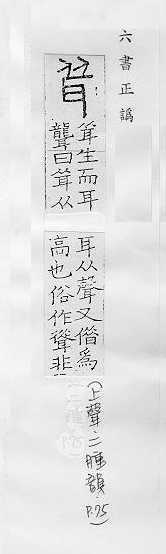 六書正譌
耸
耸生而耳
聾曰耸从
耳从聲又偕爲
高也俗作聳非
(上聲·二腫韻 P.95)